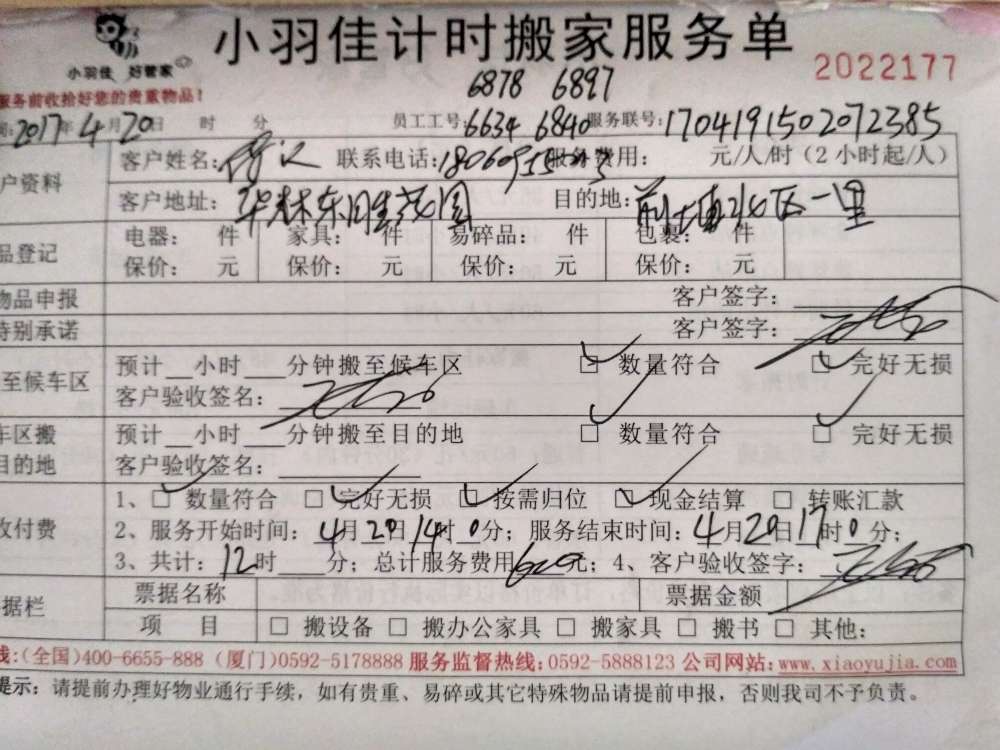 小羽佳计时搬家服务单
小羽佳 好管家
2022177
服务前收拾好您的贵重物品!
6878 6897
2017年4月20日 时 分 员工工号:6634 6840 服务联号:1704191502072385
户资料 客户姓名: 联系电话: 服务费用: 元/人/时(2小时起/人)
客户地址: 华林东盛花园 目的地: 前埔北区一里
品登记 电器: 件 家具: 件 易碎品: 件 包裹: 件
保价: 元 保价: 元 保价: 元 保价: 元
物品申报 客户签字:
特别承诺 客户签字:
至候车区 预计__小时___分钟搬至候车区 数量符合 完好无损
客户验收签名:
车区搬 预计__小时___分钟搬至目的地 □ 数量符合 □ 完好无损
目的地 客户验收签名:
收付费 1、□ 数量符合 □ 完好无损 □ 按需归位 □ 现金结算 □ 转账汇款
2、服务开始时间: 4月20日14时0分; 服务结束时间: 4月20日17时0分;
3、共计: 12时___分; 总计服务费用 元; 4、客户验收签字:
据栏 票据名称 票据金额
项 目 □ 搬设备 □ 搬办公家具 □ 搬家具 □ 搬书 □ 其他:
线:(全国)400-6655-888 (厦门)0592-5178888 服务监督热线:0592-5888123 公司网站:www.xiaoyujia.com
提示: 请提前办理好物业通行手续,如有贵重、易碎或其它特殊物品请提前申报,否则我司不予负责。